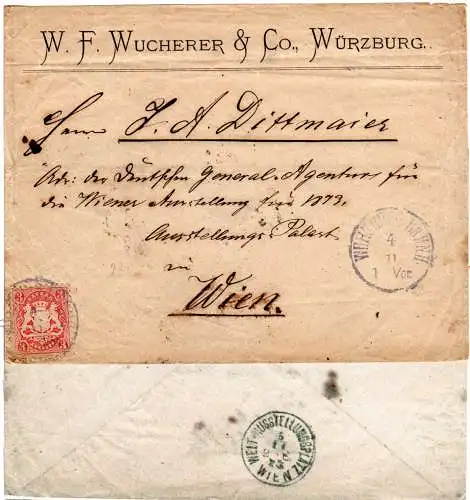 W. F. WUCHERER & CO., WÜRZBURG.
Herrn J. A. Dittmaier
Adr: der Deutschen General-Agentur für
die Wiener Ausstellung 1873.
Ausstellungs-Palast
in
Wien.
4
11
1 Vor
WELT-AUSSTELLUNGSPLATZ
WIEN